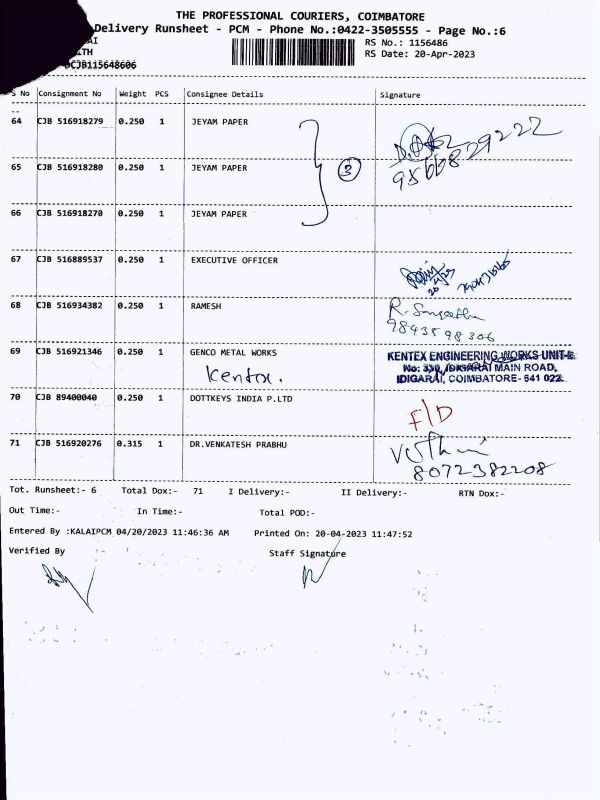 THE PROFESSIONAL COURIERS, COIMBATORE
Delivery Runsheet - PCM - Phone No.:0422-3505555 - Page No.:6
AI RS No.: 1156486
ITH RS Date: 20-Apr-2023
CJB115648606
S No Consignment No Weight PCS Consignee Details Signature
64 CJB 516918279 0.250 1 JEYAM PAPER
65 CJB 516918280 0.250 1 JEYAM PAPER
3
66 CJB 516918270 0.250 1 JEYAM PAPER
67 CJB 516889537 0.250 1 EXECUTIVE OFFICER
68 CJB 516934382 0.250 1 RAMESH R. Sangeetha
98435 98306
69 CJB 516921346 0.250 1 GENCO METAL WORKS KENTEX ENGINEERING WORKS-UNIT-II
Kentex. No: 330, IDIGARAI MAIN ROAD,
IDIGARAI, COIMBATORE- 641 022
70 CJB 89400040 0.250 1 DOTTKEYS INDIA P.LTD F/D
71 CJB 516920276 0.315 1 DR.VENKATESH PRABHU
8072382208
Tot. Runsheet:- 6 Total Dox:- 71 I Delivery:- II Delivery:- RTN Dox:-
Out Time:- In Time:- Total POD:-
Entered By :KALAIPCM 04/20/2023 11:46:36 AM Printed On: 20-04-2023 11:47:52
Verified By Staff Signature